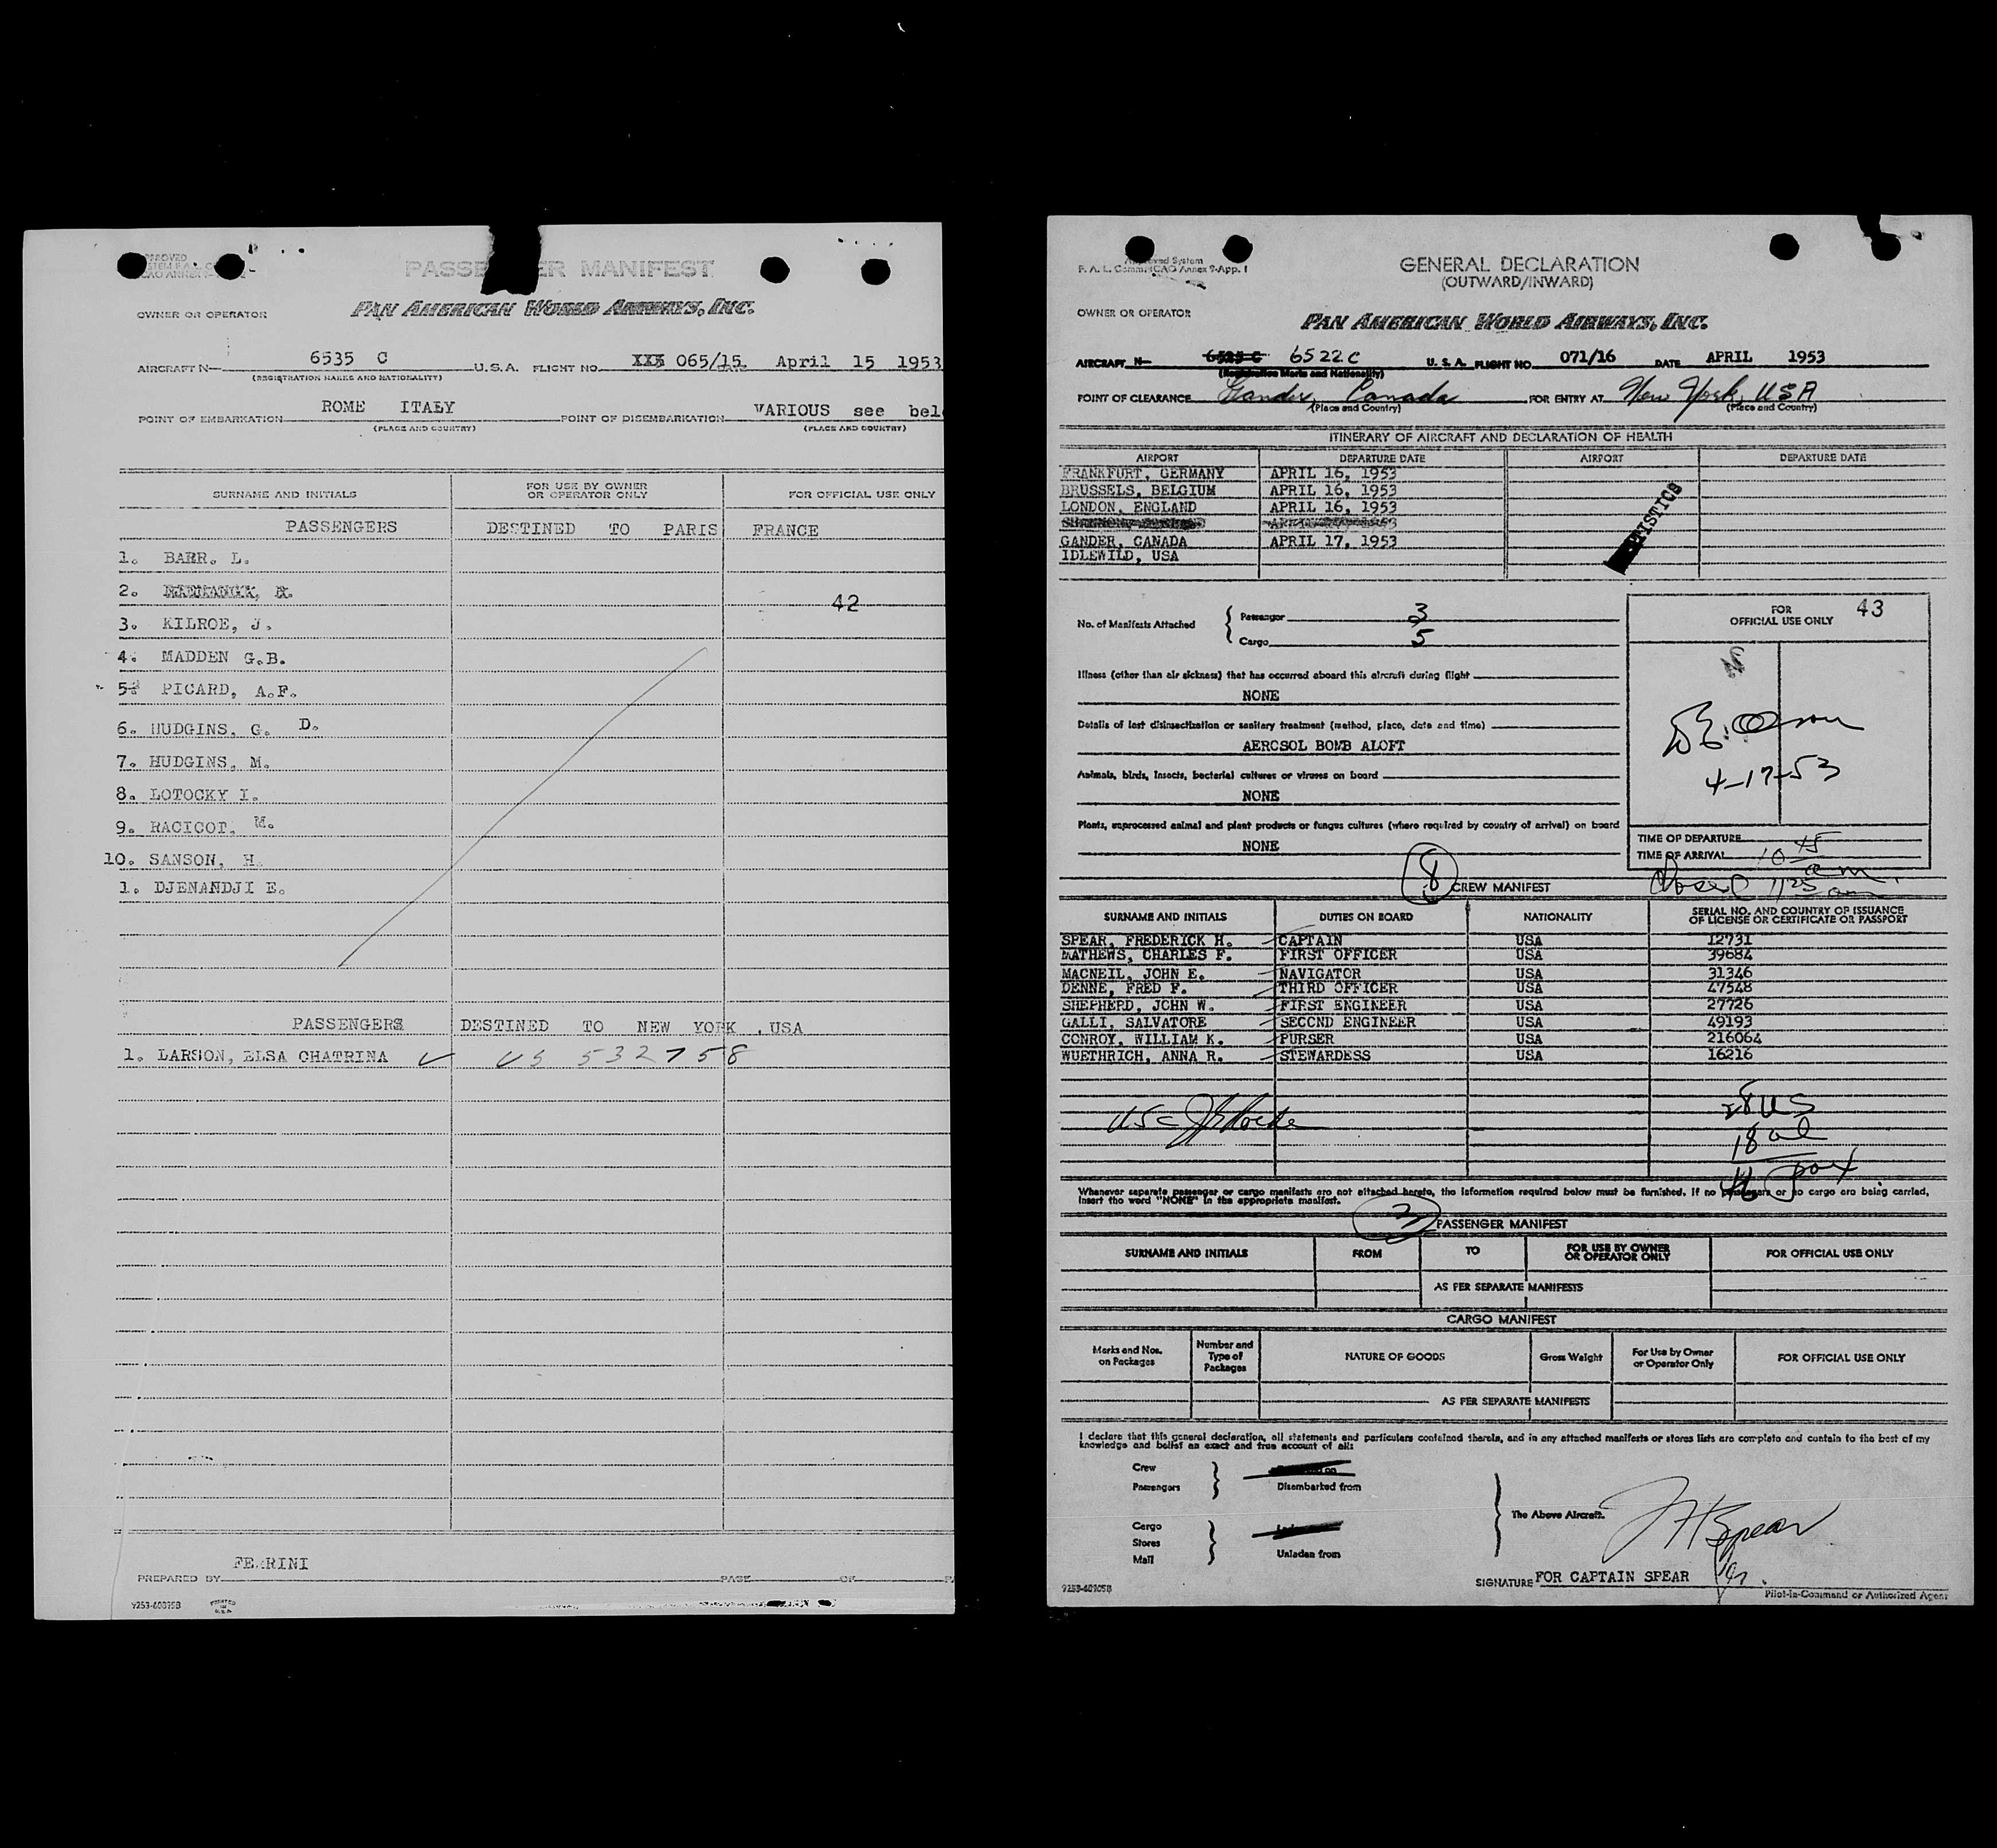 PASSE ER MANIFEST
OWNER OR OPERATOR
PAN AMERICAN WORLD AIRWAYS, INC.
AIRCRAFT N— 6535 C U.S.A. FLIGHT NO. XXX 065/15 April 15 1953
(REGISTRATION MARKS AND NATIONALITY)
POINT OF EMBARKATION ROME ITALY POINT OF DISEMBARKATION VARIOUS see bel
(PLACE AND COUNTRY) (PLACE AND COUNTRY)
SURNAME AND INITIALS FOR USE BY OWNER OR OPERATOR ONLY FOR OFFICIAL USE ONLY
PASSENGERS DESTINED TO PARIS FRANCE
1. BARR, L.
2.
42
3. KILROE, J.
4. MADDEN G.B.
5. PICARD, A.F.
6. HUDGINS, G. D.
7. HUDGINS, M.
8. LOTOCKY I.
9. RACICOT, M.
10. SANSON, H.
1. DJENANDJI E.
PASSENGERS DESTINED TO NEW YORK , USA
1. LARSON, ELSA CHATRINA US 532758
FERRINI
PREPARED BY PAGE OF
9253-60895B PRINTED IN U.S.A.
F. A. L. Comm/ICAO Annex 9-App. 1
GENERAL DECLARATION
(OUTWARD/INWARD)
OWNER OR OPERATOR
PAN AMERICAN WORLD AIRWAYS, INC.
AIRCRAFT N— 6525 C 6522C U. S. A. FLIGHT NO. 071/16 DATE APRIL 1953
(Registration Marks and Nationality)
POINT OF CLEARANCE Gander, Canada FOR ENTRY AT New York, USA
(Place and Country) (Place and Country)
ITINERARY OF AIRCRAFT AND DECLARATION OF HEALTH
AIRPORT DEPARTURE DATE AIRPORT DEPARTURE DATE
FRANKFURT, GERMANY APRIL 16, 1953
BRUSSELS, BELGIUM APRIL 16, 1953
LONDON, ENGLAND APRIL 16, 1953
GANDER, CANADA APRIL 17, 1953
IDLEWILD, USA
TISTICS
No. of Manifests Attached
Passenger 3
Cargo 5
FOR OFFICIAL USE ONLY 43
Illness (other than air sickness) that has occurred aboard this aircraft during flight
NONE
Details of last disinsectization or sanitary treatment (method, place, date and time)
AEROSOL BOMB ALOFT
4-17-53
Animals, birds, insects, bacterial cultures or viruses on board
NONE
Plants, unprocessed animal and plant products or fungus cultures (where required by country of arrival) on board
NONE
TIME OF DEPARTURE
TIME OF ARRIVAL 10 45 am.
8 CREW MANIFEST
closed 1125 am
SURNAME AND INITIALS DUTIES ON BOARD NATIONALITY SERIAL NO. AND COUNTRY OF ISSUANCE OF LICENSE OR CERTIFICATE OR PASSPORT
SPEAR, FREDERICK H. CAPTAIN USA 12731
MATHEWS, CHARLES F. FIRST OFFICER USA 39684
MACNEIL, JOHN E. NAVIGATOR USA 31346
DENNE, FRED F. THIRD OFFICER USA 47548
SHEPHERD, JOHN W. FIRST ENGINEER USA 27726
GALLI, SALVATORE SECOND ENGINEER USA 49193
CONROY, WILLIAM K. PURSER USA 216064
WUETHRICH, ANNA R. STEWARDESS USA 16216
28 US
18 al
46 pax
Whenever separate passenger or cargo manifests are not attached hereto, the information required below must be furnished. If no passengers or no cargo are being carried,
insert the word "NONE" in the appropriate manifest.
3 PASSENGER MANIFEST
SURNAME AND INITIALS FROM TO FOR USE BY OWNER OR OPERATOR ONLY FOR OFFICIAL USE ONLY
AS PER SEPARATE MANIFESTS
CARGO MANIFEST
Marks and Nos. on Packages Number and Type of Packages NATURE OF GOODS Gross Weight For Use by Owner or Operator Only FOR OFFICIAL USE ONLY
AS PER SEPARATE MANIFESTS
I declare that this general declaration, all statements and particulars contained therein, and in any attached manifests or stores lists are complete and contain to the best of my
knowledge and belief an exact and true account of all:
Crew
Passengers Disembarked from
The Above Aircraft.
Cargo
Stores
Mail Unladen from
FHSpear
SIGNATURE FOR CAPTAIN SPEAR
9253-60905B
Pilot-in-Command or Authorized Agent